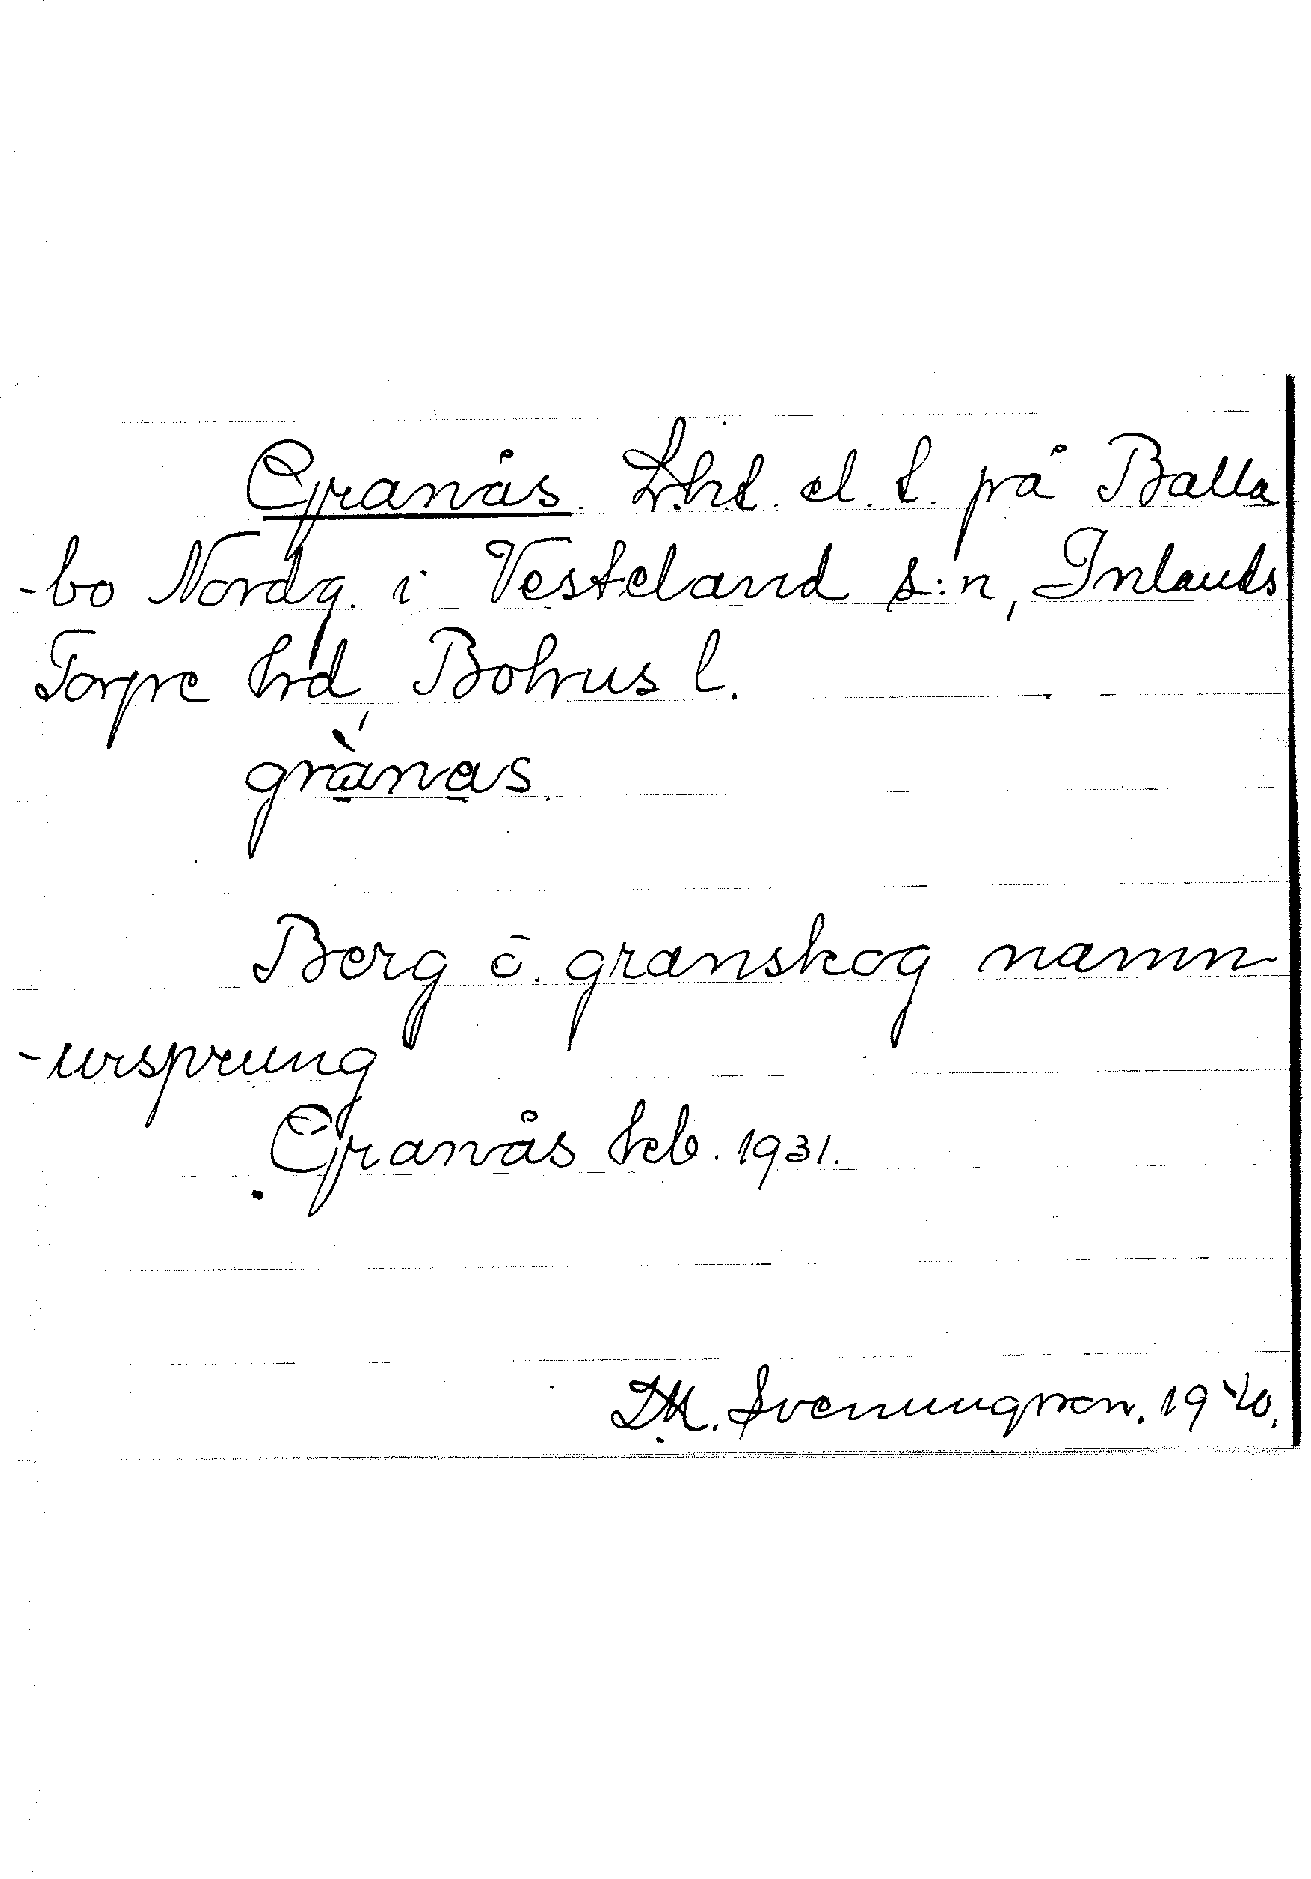 Granås. Lht. el. t. på Balla
-bo Nordg. i Vesteland s:n, Inlands
Torpe hrd, Bohus l.
grànas.
Berg o. granskog namn-
-ursprung
Granås kb. 1931.
D.M. Svenungsson. 1940.